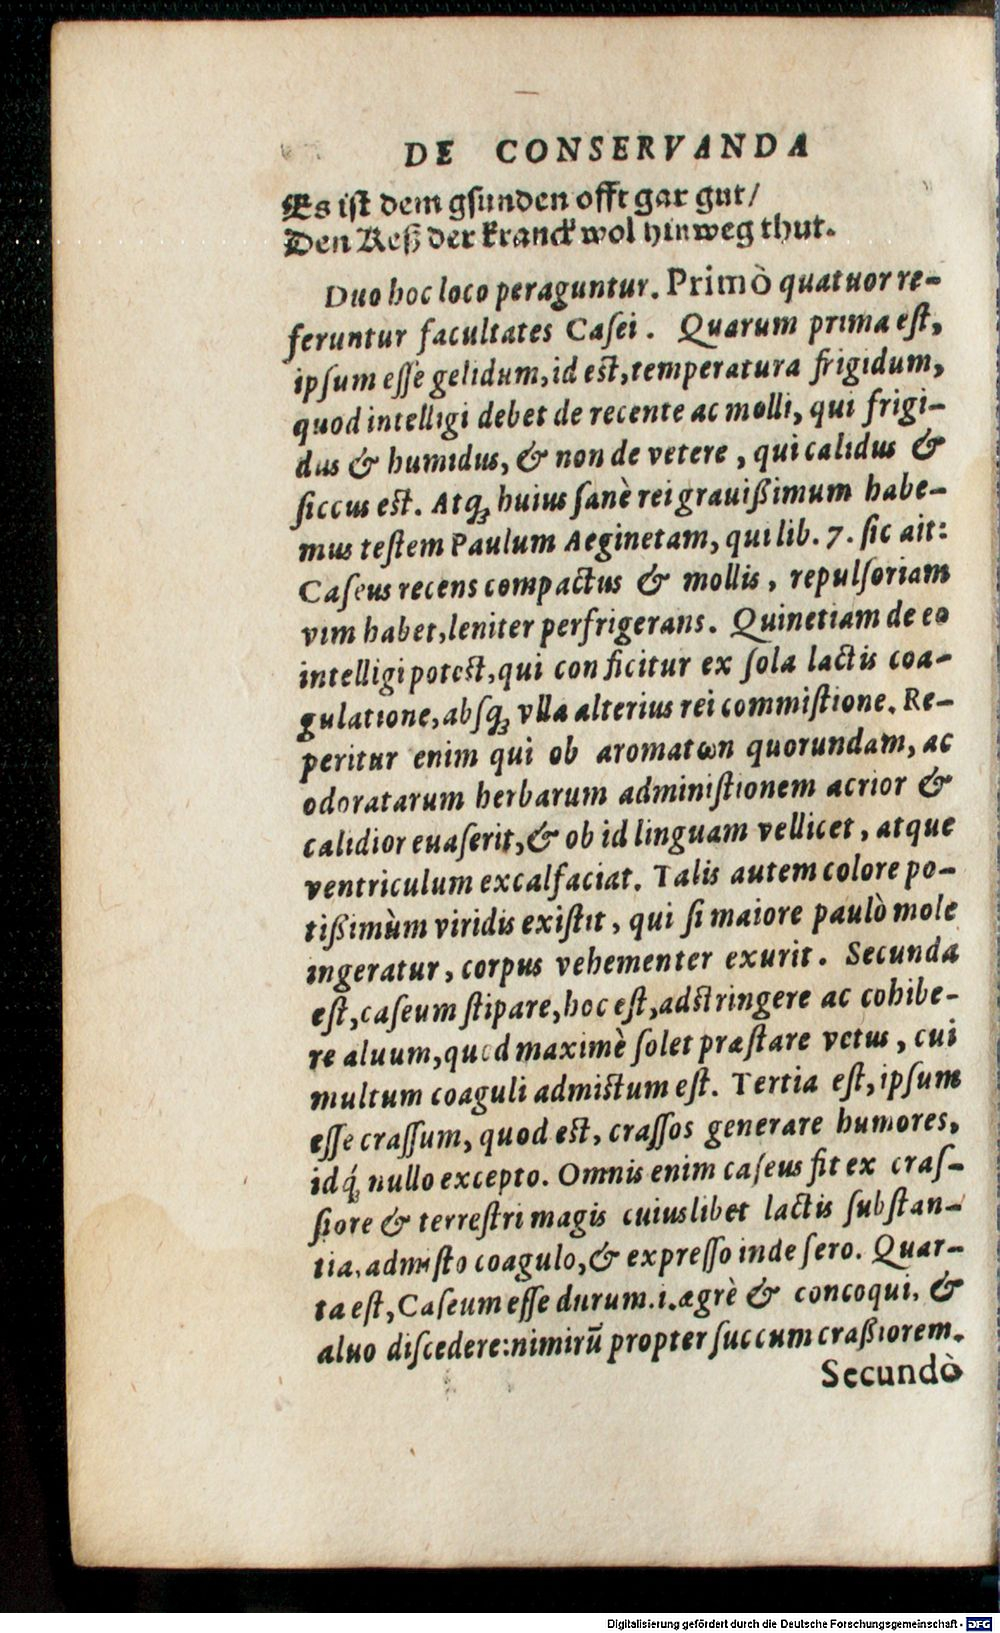 DE CONSERVANDA
Es ist dem gsunden offt gar gut/
Den Keß der kranck wol hinweg thut.
Duo hoc loco peraguntur. Primò quatuor re-
feruntur facultates Caſei. Quarum prima eſt,
ipſum eſſe gelidum, id eſt, temperatura frigidum,
quod intelligi debet de recente ac molli, qui frigi-
dus & humidus, & non de vetere, qui calidus &
ſiccus eſt. Atq; huius ſanè rei grauißimum habe-
mus teſtem Paulum Aeginetam, qui lib. 7. ſic ait:
Caſeus recens compactus & mollis, repulſoriam
vim habet, leniter perfrigerans. Quinetiam de eo
intelligi poteſt, qui conficitur ex ſola lactis coa-
gulatione, abſq; vlla alterius rei commiſtione. Re-
peritur enim qui ob aromatωn quorundam, ac
odoratarum herbarum adminiſtionem acrior &
calidior euaſerit, & ob id linguam vellicet, atque
ventriculum excalfaciat. Talis autem colore po-
tißimùm viridis exiſtit, qui ſi maiore paulò mole
ingeratur, corpus vehementer exurit. Secunda
eſt, caſeum ſtipare, hoc eſt, adſtringere ac cohibe-
re aluum, quod maximè ſolet præſtare vetus, cui
multum coaguli admictum eſt. Tertia eſt, ipſum
eſſe craſſum, quod eſt, craſſos generare humores,
idq́; nullo excepto. Omnis enim caſeus fit ex craſ-
ſiore & terreſtri magis cuiuslibet lactis ſubſtan-
tia, admiſto coagulo, & expreſſo inde ſero. Quar-
ta eſt, Caſeum eſſe durum .i. ægrè & concoqui, &
aluo diſcedere: nimirũ propter ſuccum craßiorem.
Secundò
Digitalisierung gefördert durch die Deutsche Forschungsgemeinschaft - DFG